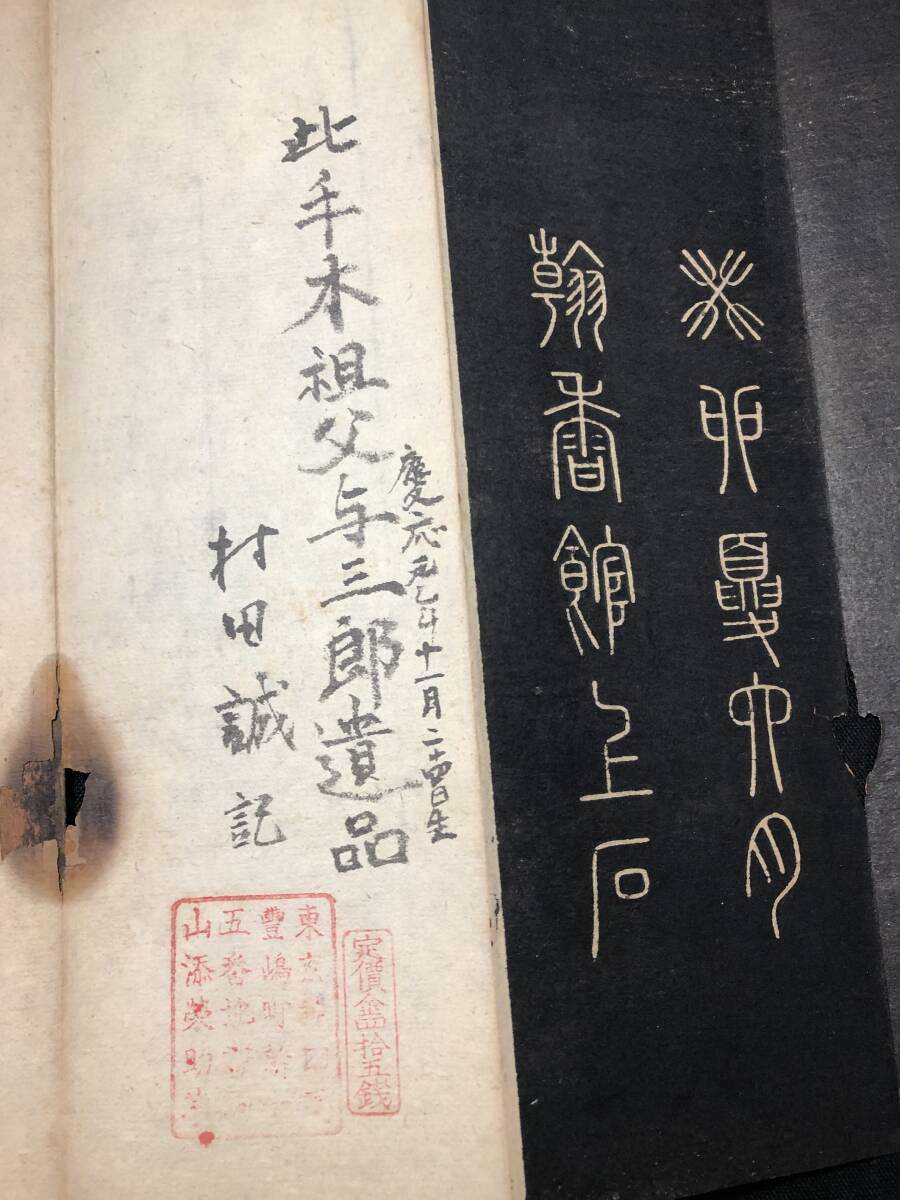 癸卯夏六月
翰香館上石
慶応元年十一月二十四日生
此手本祖父与三郎遺品
村田誠記
定價金四拾五錢
東京
豐嶋町
五番地
山添榮助